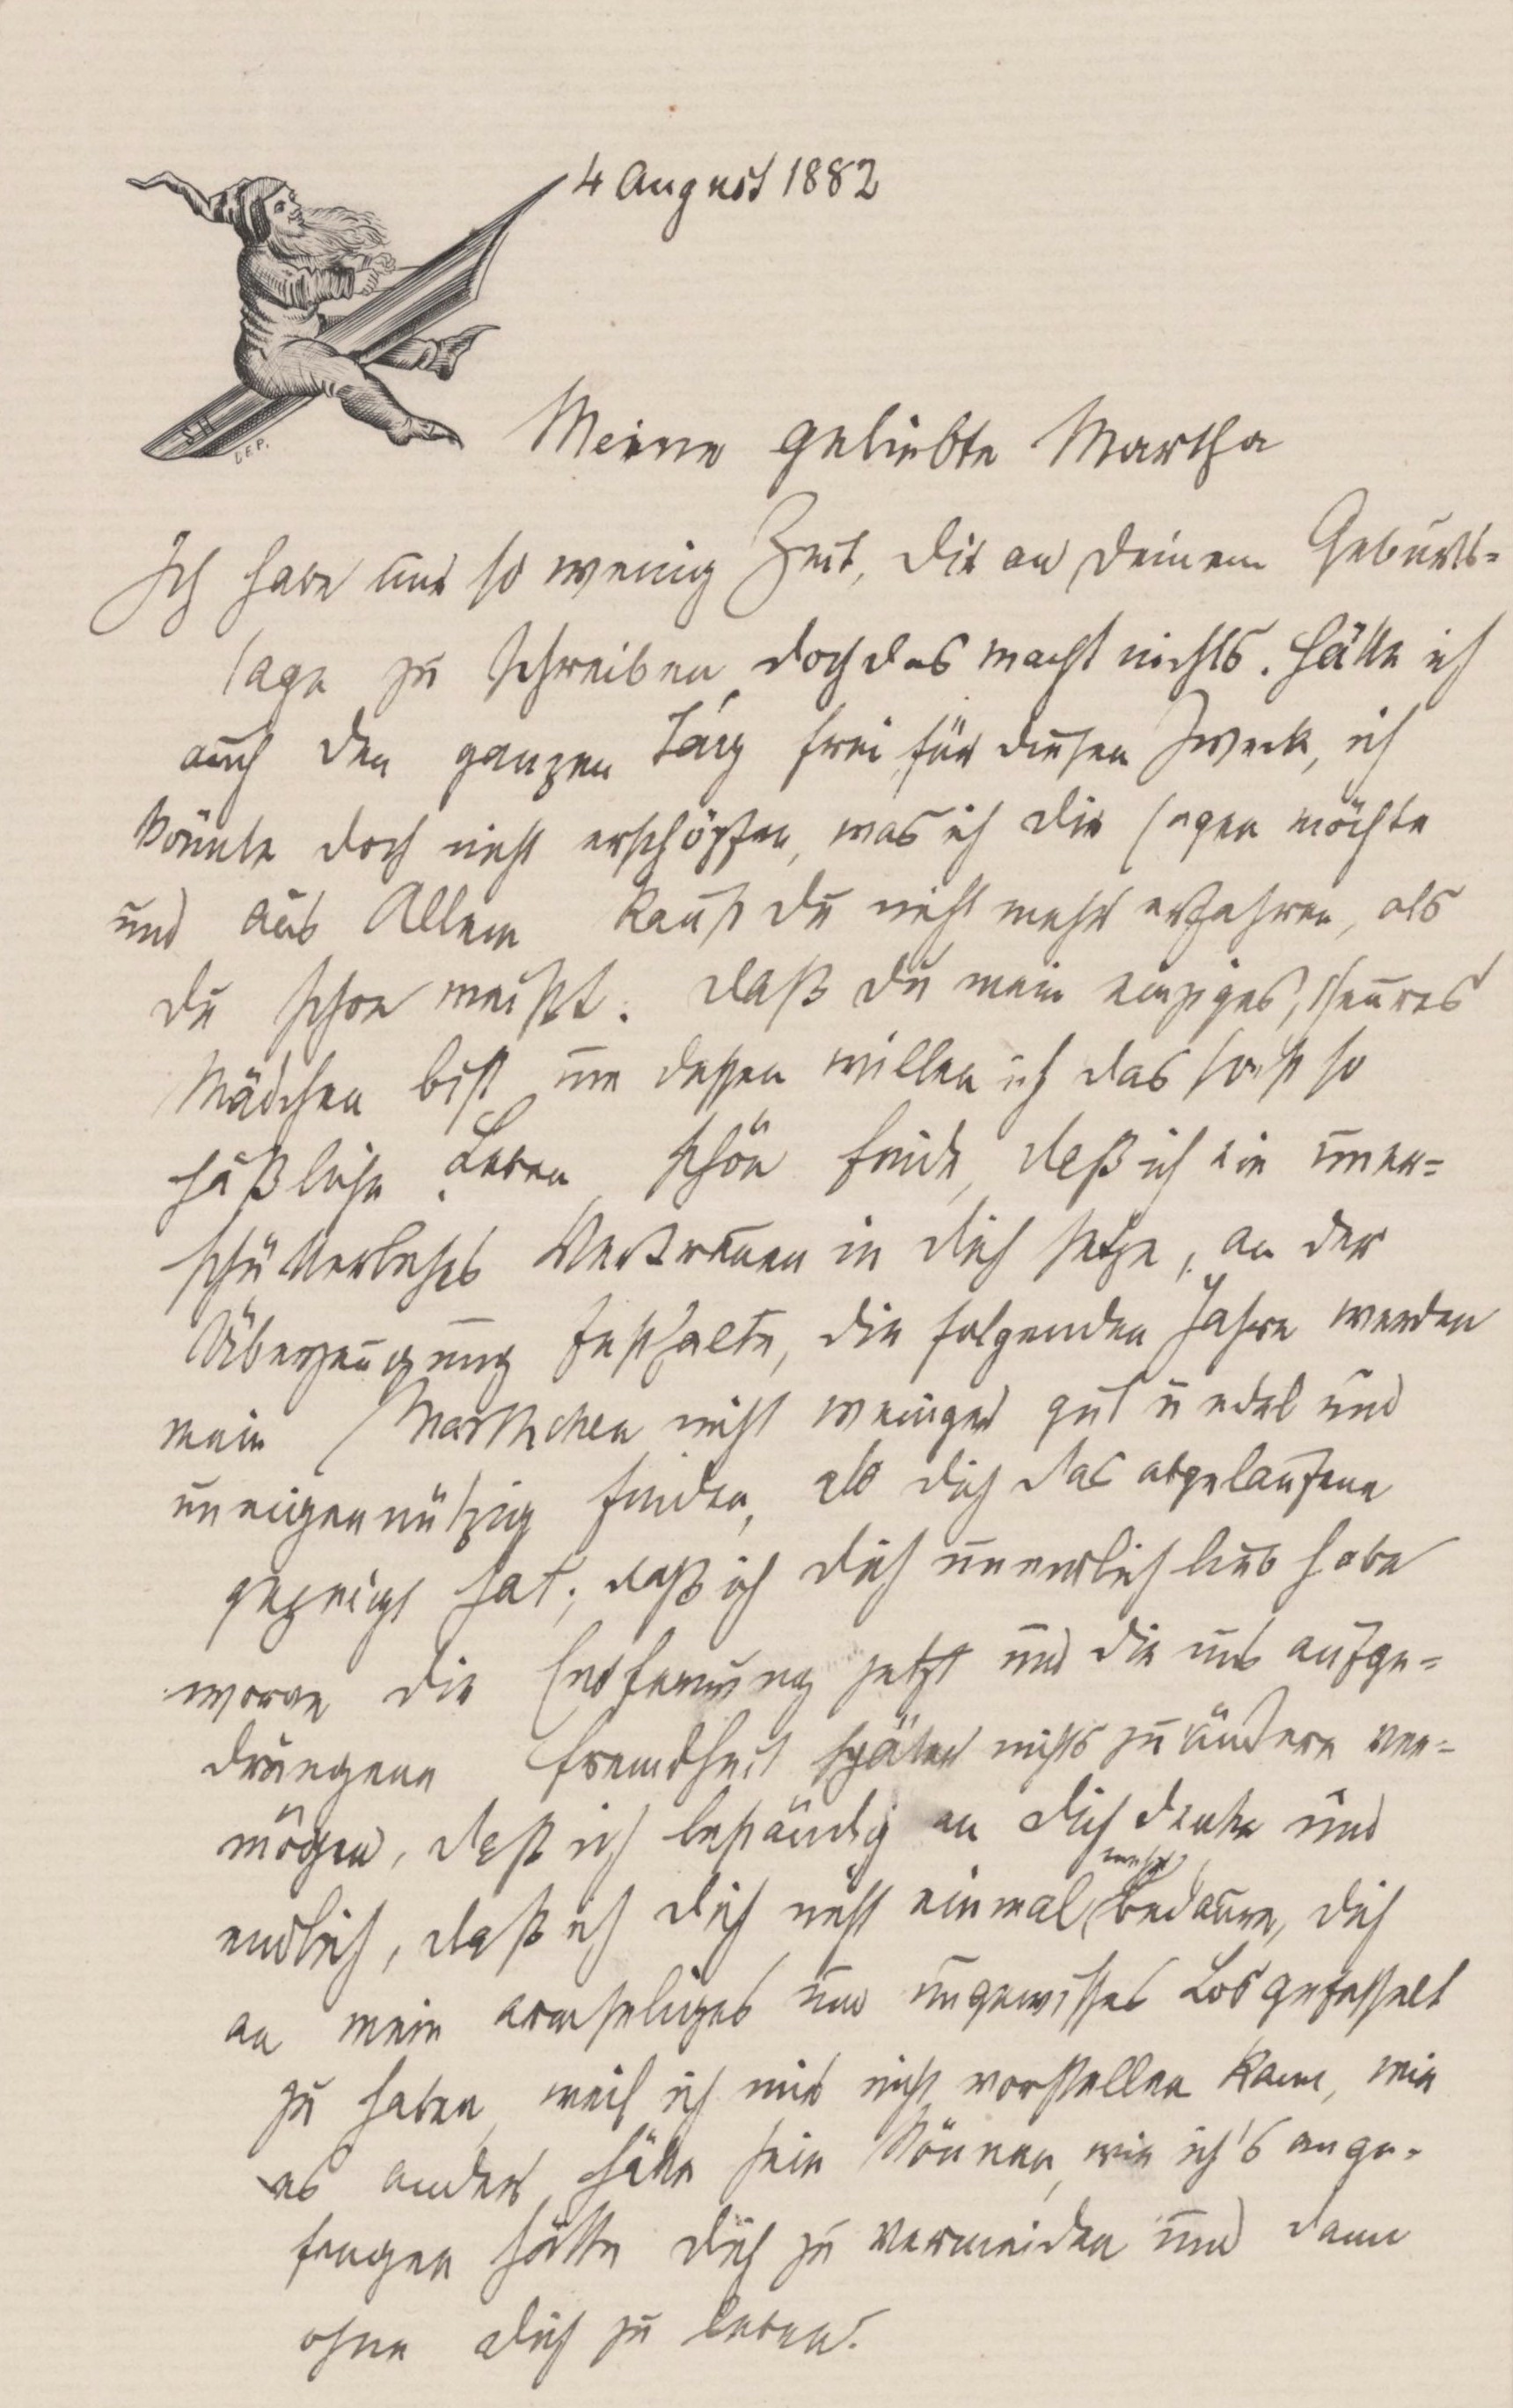 4 August 1882
SH
C.E.P.
Meine geliebte Martha
Ich habe nur so wenig Zeit, Dir an Deinem Geburts-
tage zu schreiben, doch das macht nichts. Hätte ich
auch den ganzen Tag frei für diesen Zweck, ich
könnte doch nicht erschöpfen, was ich Dir sagen möchte
und aus Allem kannst Du nicht mehr erfahren, als
Du schon weißt. Daß Du mein einziges, theures
Mädchen bist um dessen willen ich das sonst so
häßliche Leben schön finde, daß ich ein uner-
schütterliches Vertrauen in Dich setze, an der
Überzeugung festhalte, die folgenden Jahre werden
mein Marthchen nicht weniger gut u edel und
uneigennützig finden, als Dich das abgelaufene
gezeigt hat; daß ich Dich unendlich lieb habe
woran die Entfernung jetzt und die uns aufge-
drungene Fremdheit später nichts zu ändern ver-
mögen, daß ich beständig an Dich denke und
endlich, daß ich Dich nicht einmal mehr bedaure, Dich
an mein armseliges und ungewisses Los gefesselt
zu haben, weil ich mir nicht vorstellen kann, wie
es anders hätte sein können, wie ich's ange-
fangen hätte Dich zu vermeiden und dann
ohne Dich zu leben.